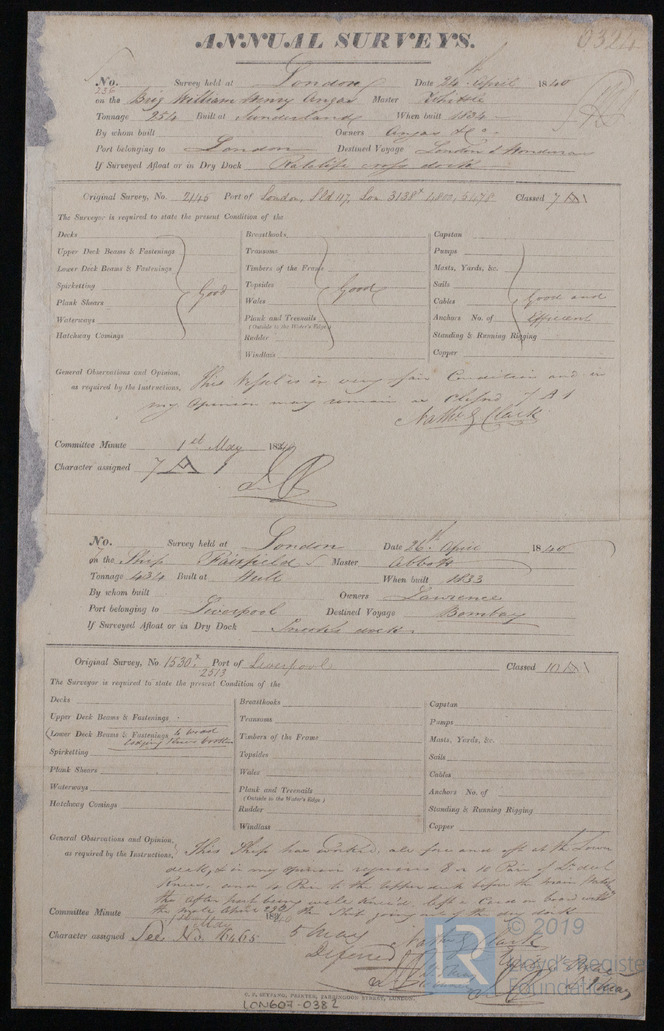 0324
ANNUAL SURVEYS.
No. 236 Survey held at London Date 24 April 1840
on the Brig William Henry Angas Master
Tonnage 254 Built at Sunderland When built 1834
By whom built Owners Angas & Co
Port belonging to London Destined Voyage London & Honduras
If Surveyed Afloat or in Dry Dock Ratcliffe cross dock
Original Survey, No. 2145 Port of London, Sld 117, Lon 3138 Classed 7 A 1
The Surveyor is required to state the present Condition of the
Decks Breasthooks Capstan
Upper Deck Beams & Fastenings Transoms Pumps
Lower Deck Beams & Fastenings Timbers of the Frame Masts, Yards, &c.
Spirketting Topsides Sails
Good Good Good and
Plank Sheers Wales Cables
Waterways Plank and Treenails Anchors No. of Efficient
(Outside to the Water's Edge)
Hatchway Comings Rudder Standing & Running Rigging
Windlass Copper
General Observations and Opinion, This Vessel is in very fair Condition and in
as required by the Instructions, my Opinion may remain as Classed 7 A 1
Nath. G Clark
Committee Minute 1st May 1840
Character assigned 7 A 1
No. Survey held at London Date 26th April 1840
on the Ship Fairfield Master Abbott
Tonnage 434 Built at Hull When built 1833
By whom built Owners Lawrence
Port belonging to Liverpool Destined Voyage Bombay
If Surveyed Afloat or in Dry Dock dock
Original Survey, No 1530 Port of Liverpool Classed 10 A 1
2313
The Surveyor is required to state the present Condition of the
Decks Breasthooks Capstan
Upper Deck Beams & Fastenings Transoms Pumps
Lower Deck Beams & Fastenings Timbers of the Frame Masts, Yards, &c.
Spirketting Topsides Sails
Plank Sheers Wales Cables
Waterways Plank and Treenails Anchors No. of
(Outside to the Water's Edge)
Hatchway Comings Rudder Standing & Running Rigging
Windlass Copper
General Observations and Opinion, This Ship has worked also fore and aft at the Lower
as required by the Instructions, deck, & in my opinion requires 8 or 10 Pair of
Knees, and 10 Pair to the Upper deck before the Main Hatch
the After part being well Kneed.
the Ship going out of the dry dock
Committee Minute 1840
Character assigned See No. 6465 5 May Nath. G Clark
Deferred
© 2019
LR
Lloyd's Register
Foundation
LON607-0382